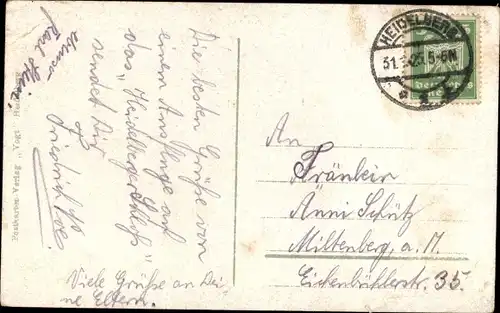 Die besten Grüße von
einem Ausfluge auf
das "Heidelberger Schloß"
sendet Dir
Friedrich
Viele Grüße an Dei-
ne Eltern.
Postkarten-Verlag "Vogt"
HEIDELBERG
5-6N
An
Fräulein
Änni Schütz
Miltenberg, a. M.
Eichenbühlerstr. 35.